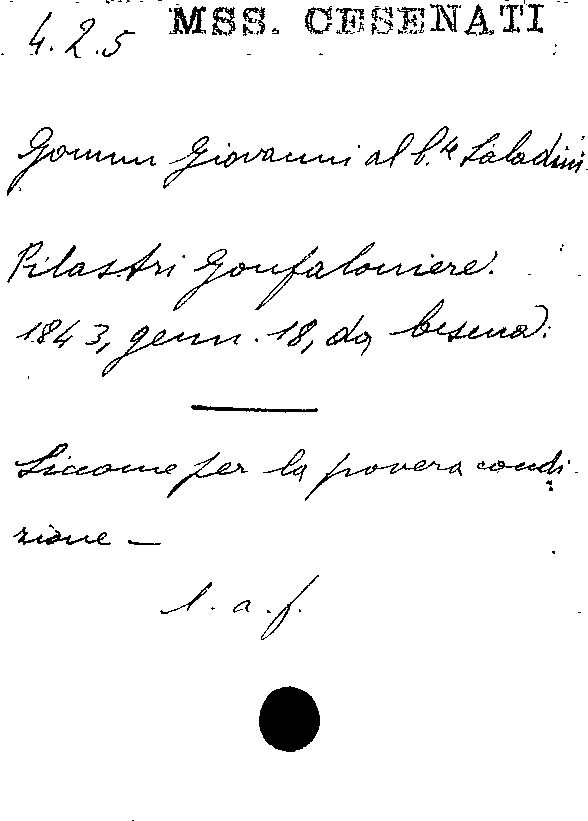 4.2.5 MSS. CESENATI
Gommi Giovanni al C.te Saladini
Pilastri Gonfaloniere.
1843, genn. 18, da Cesena.
Siccome per la povera condi-
zione —
l. a. f.